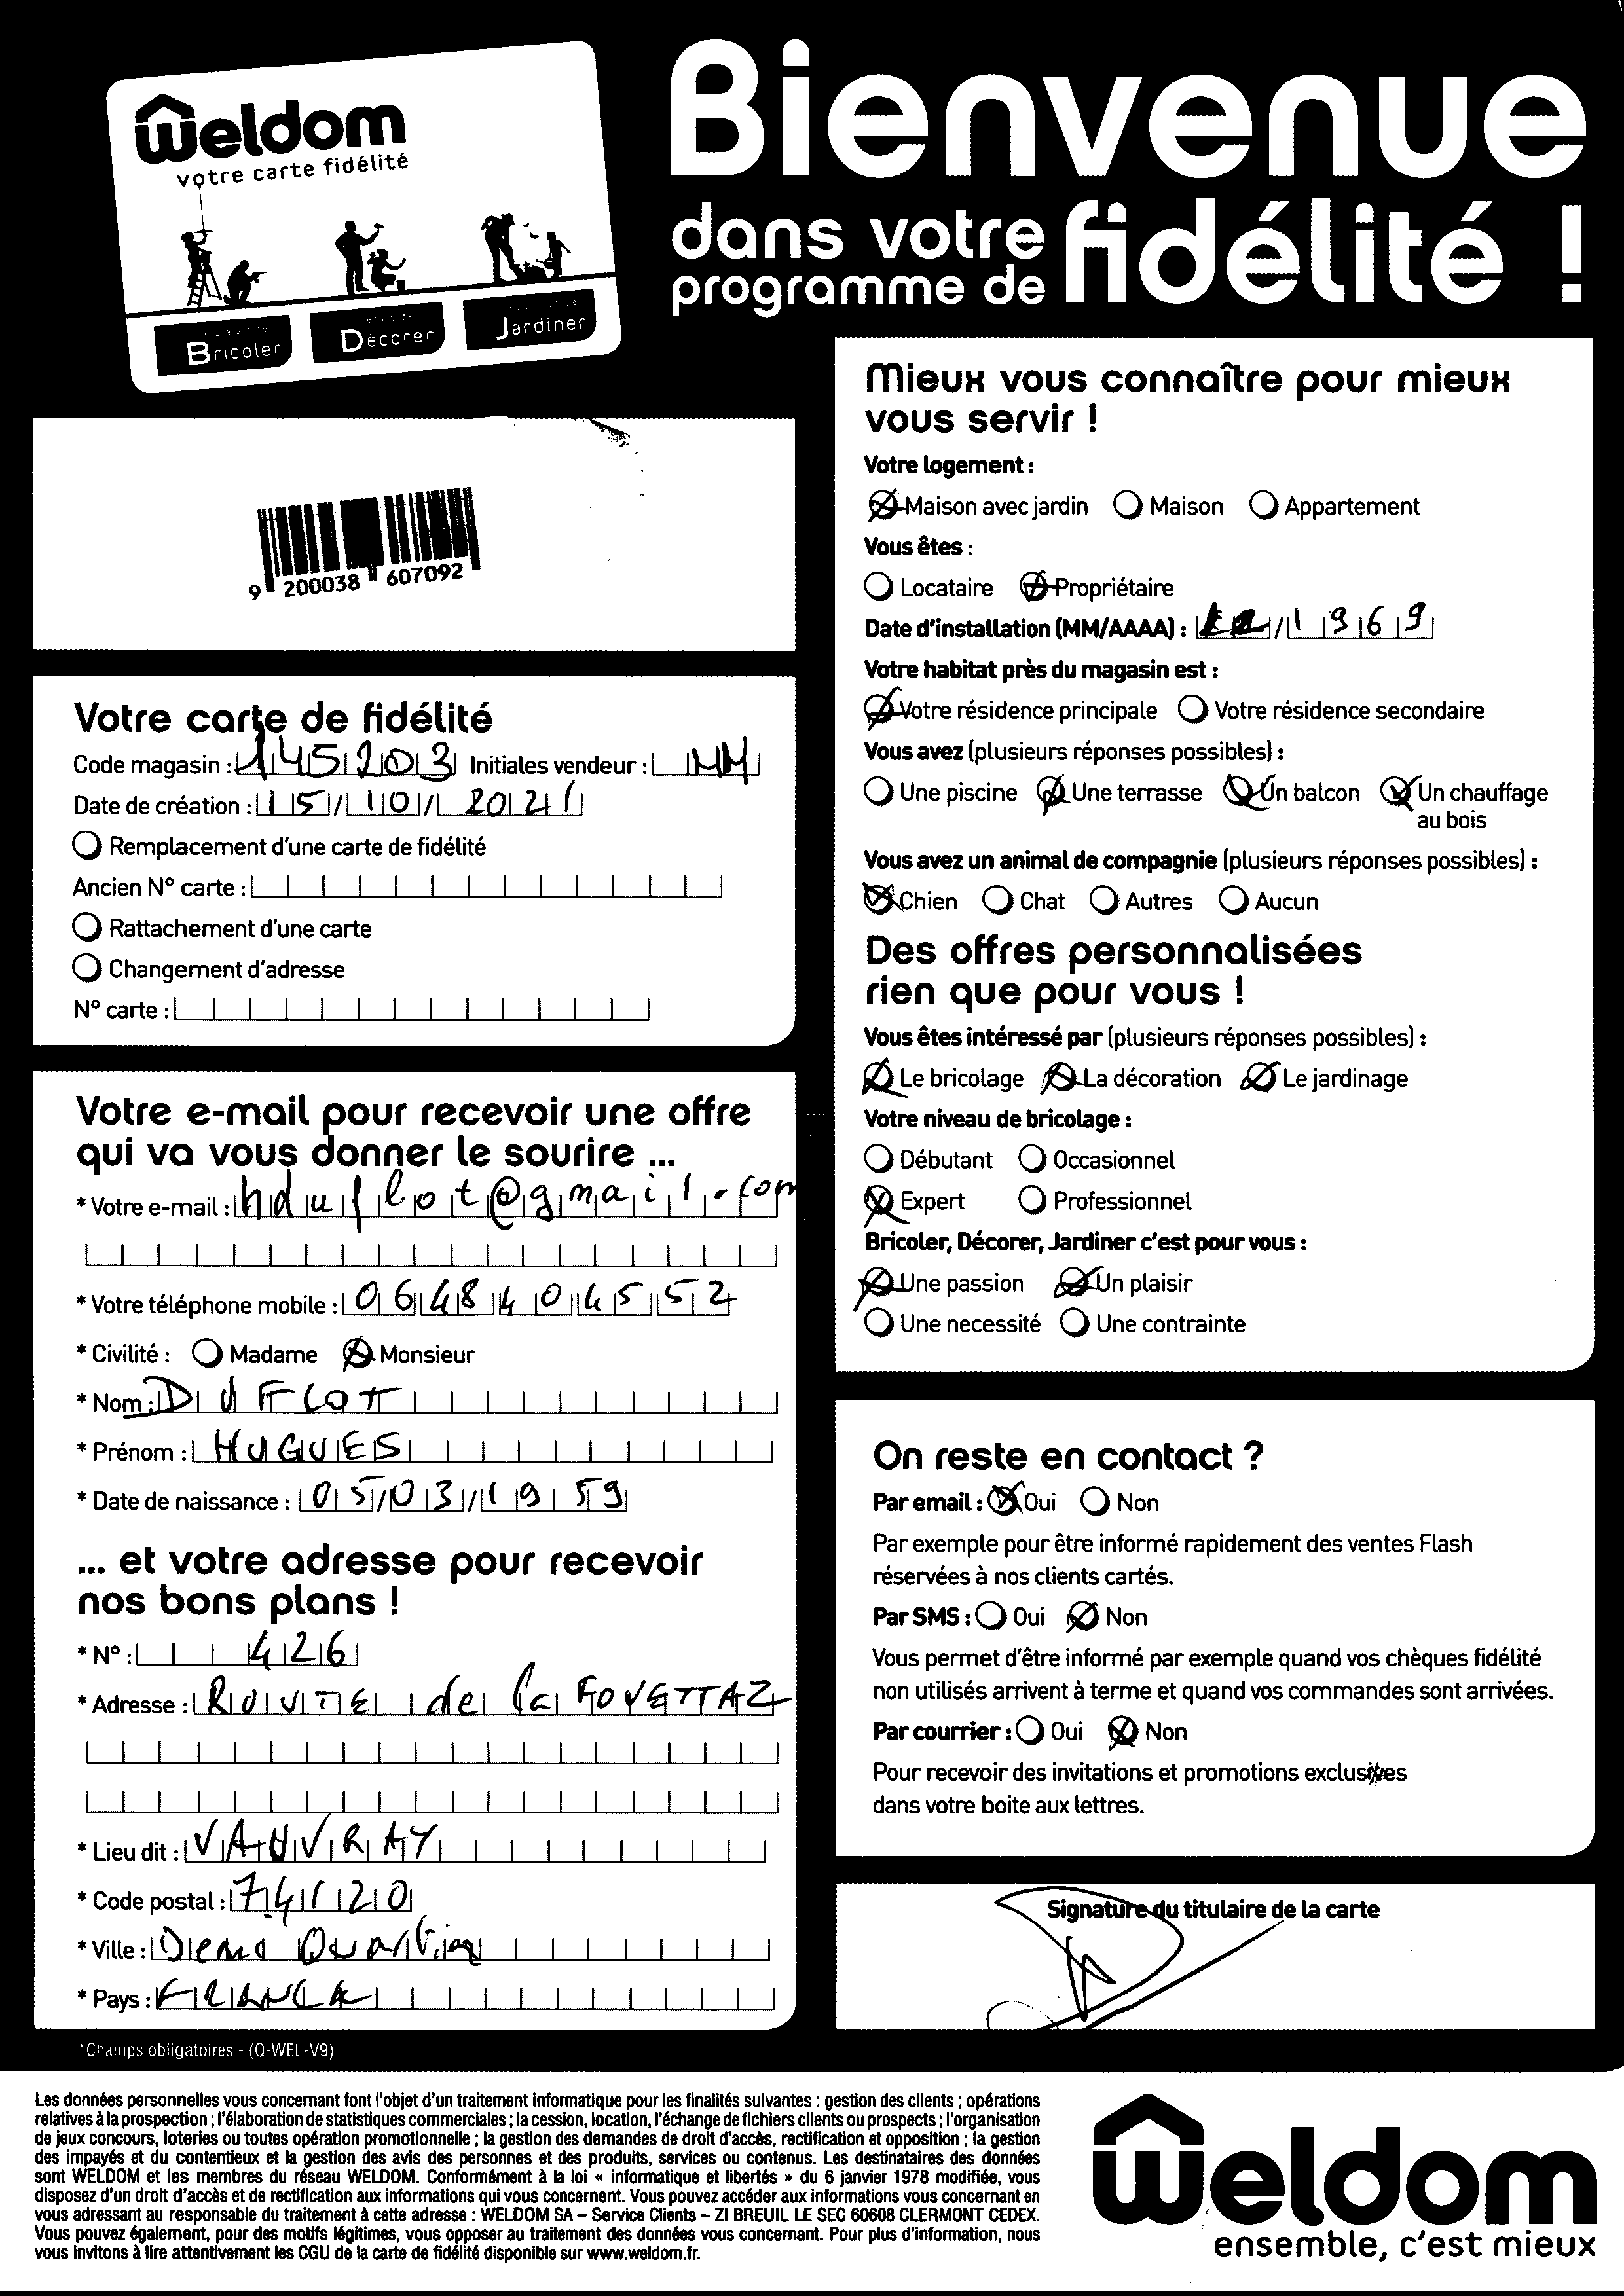 Weldom
votre carte fidélité
Bricoler
Décorer
Jardiner
Bienvenue
dans votre
programme de fidélité !
9 200038 607092
Votre carte de fidélité
Code magasin : 145203 Initiales vendeur : MM
Date de création : 15/10/2021
Remplacement d'une carte de fidélité
Ancien N° carte :
Rattachement d'une carte
Changement d'adresse
N° carte :
Votre e-mail pour recevoir une offre
qui va vous donner le sourire ...
* Votre e-mail : hduflot@gmail.com
* Votre téléphone mobile : 0648404552
* Civilité : Madame Monsieur
* Nom : DUFLOT
* Prénom : HUGUES
* Date de naissance : 05/03/1959
... et votre adresse pour recevoir
nos bons plans !
* N° : 426
* Adresse : ROUTE de la
* Lieu dit : VAUVRAY
* Code postal : 74120
* Ville :
* Pays : FRANCE
*Champs obligatoires - (Q-WEL-V9)
Mieux vous connaître pour mieux
vous servir !
Votre logement :
Maison avec jardin Maison Appartement
Vous êtes :
Locataire Propriétaire
Date d'installation (MM/AAAA) : /1969
Votre habitat près du magasin est :
Votre résidence principale Votre résidence secondaire
Vous avez (plusieurs réponses possibles) :
Une piscine Une terrasse Un balcon Un chauffage
au bois
Vous avez un animal de compagnie (plusieurs réponses possibles) :
Chien Chat Autres Aucun
Des offres personnalisées
rien que pour vous !
Vous êtes intéressé par (plusieurs réponses possibles) :
Le bricolage La décoration Le jardinage
Votre niveau de bricolage :
Débutant Occasionnel
Expert Professionnel
Bricoler, Décorer, Jardiner c'est pour vous :
Une passion Un plaisir
Une necessité Une contrainte
On reste en contact ?
Par email : Oui Non
Par exemple pour être informé rapidement des ventes Flash
réservées à nos clients cartés.
Par SMS : Oui Non
Vous permet d'être informé par exemple quand vos chèques fidélité
non utilisés arrivent à terme et quand vos commandes sont arrivées.
Par courrier : Oui Non
Pour recevoir des invitations et promotions exclusives
dans votre boite aux lettres.
Signature du titulaire de la carte
Les données personnelles vous concernant font l'objet d'un traitement informatique pour les finalités suivantes : gestion des clients ; opérations
relatives à la prospection ; l'élaboration de statistiques commerciales ; la cession, location, l'échange de fichiers clients ou prospects ; l'organisation
de jeux concours, loteries ou toutes opération promotionnelle ; la gestion des demandes de droit d'accès, rectification et opposition ; la gestion
des impayés et du contentieux et la gestion des avis des personnes et des produits, services ou contenus. Les destinataires des données
sont WELDOM et les membres du réseau WELDOM. Conformément à la loi « informatique et libertés » du 6 janvier 1978 modifiée, vous
disposez d'un droit d'accès et de rectification aux informations qui vous concernent. Vous pouvez accéder aux informations vous concernant en
vous adressant au responsable du traitement à cette adresse : WELDOM SA – Service Clients – ZI BREUIL LE SEC 60608 CLERMONT CEDEX.
Vous pouvez également, pour des motifs légitimes, vous opposer au traitement des données vous concernant. Pour plus d'information, nous
vous invitons à lire attentivement les CGU de la carte de fidélité disponible sur www.weldom.fr.
Weldom
ensemble, c'est mieux